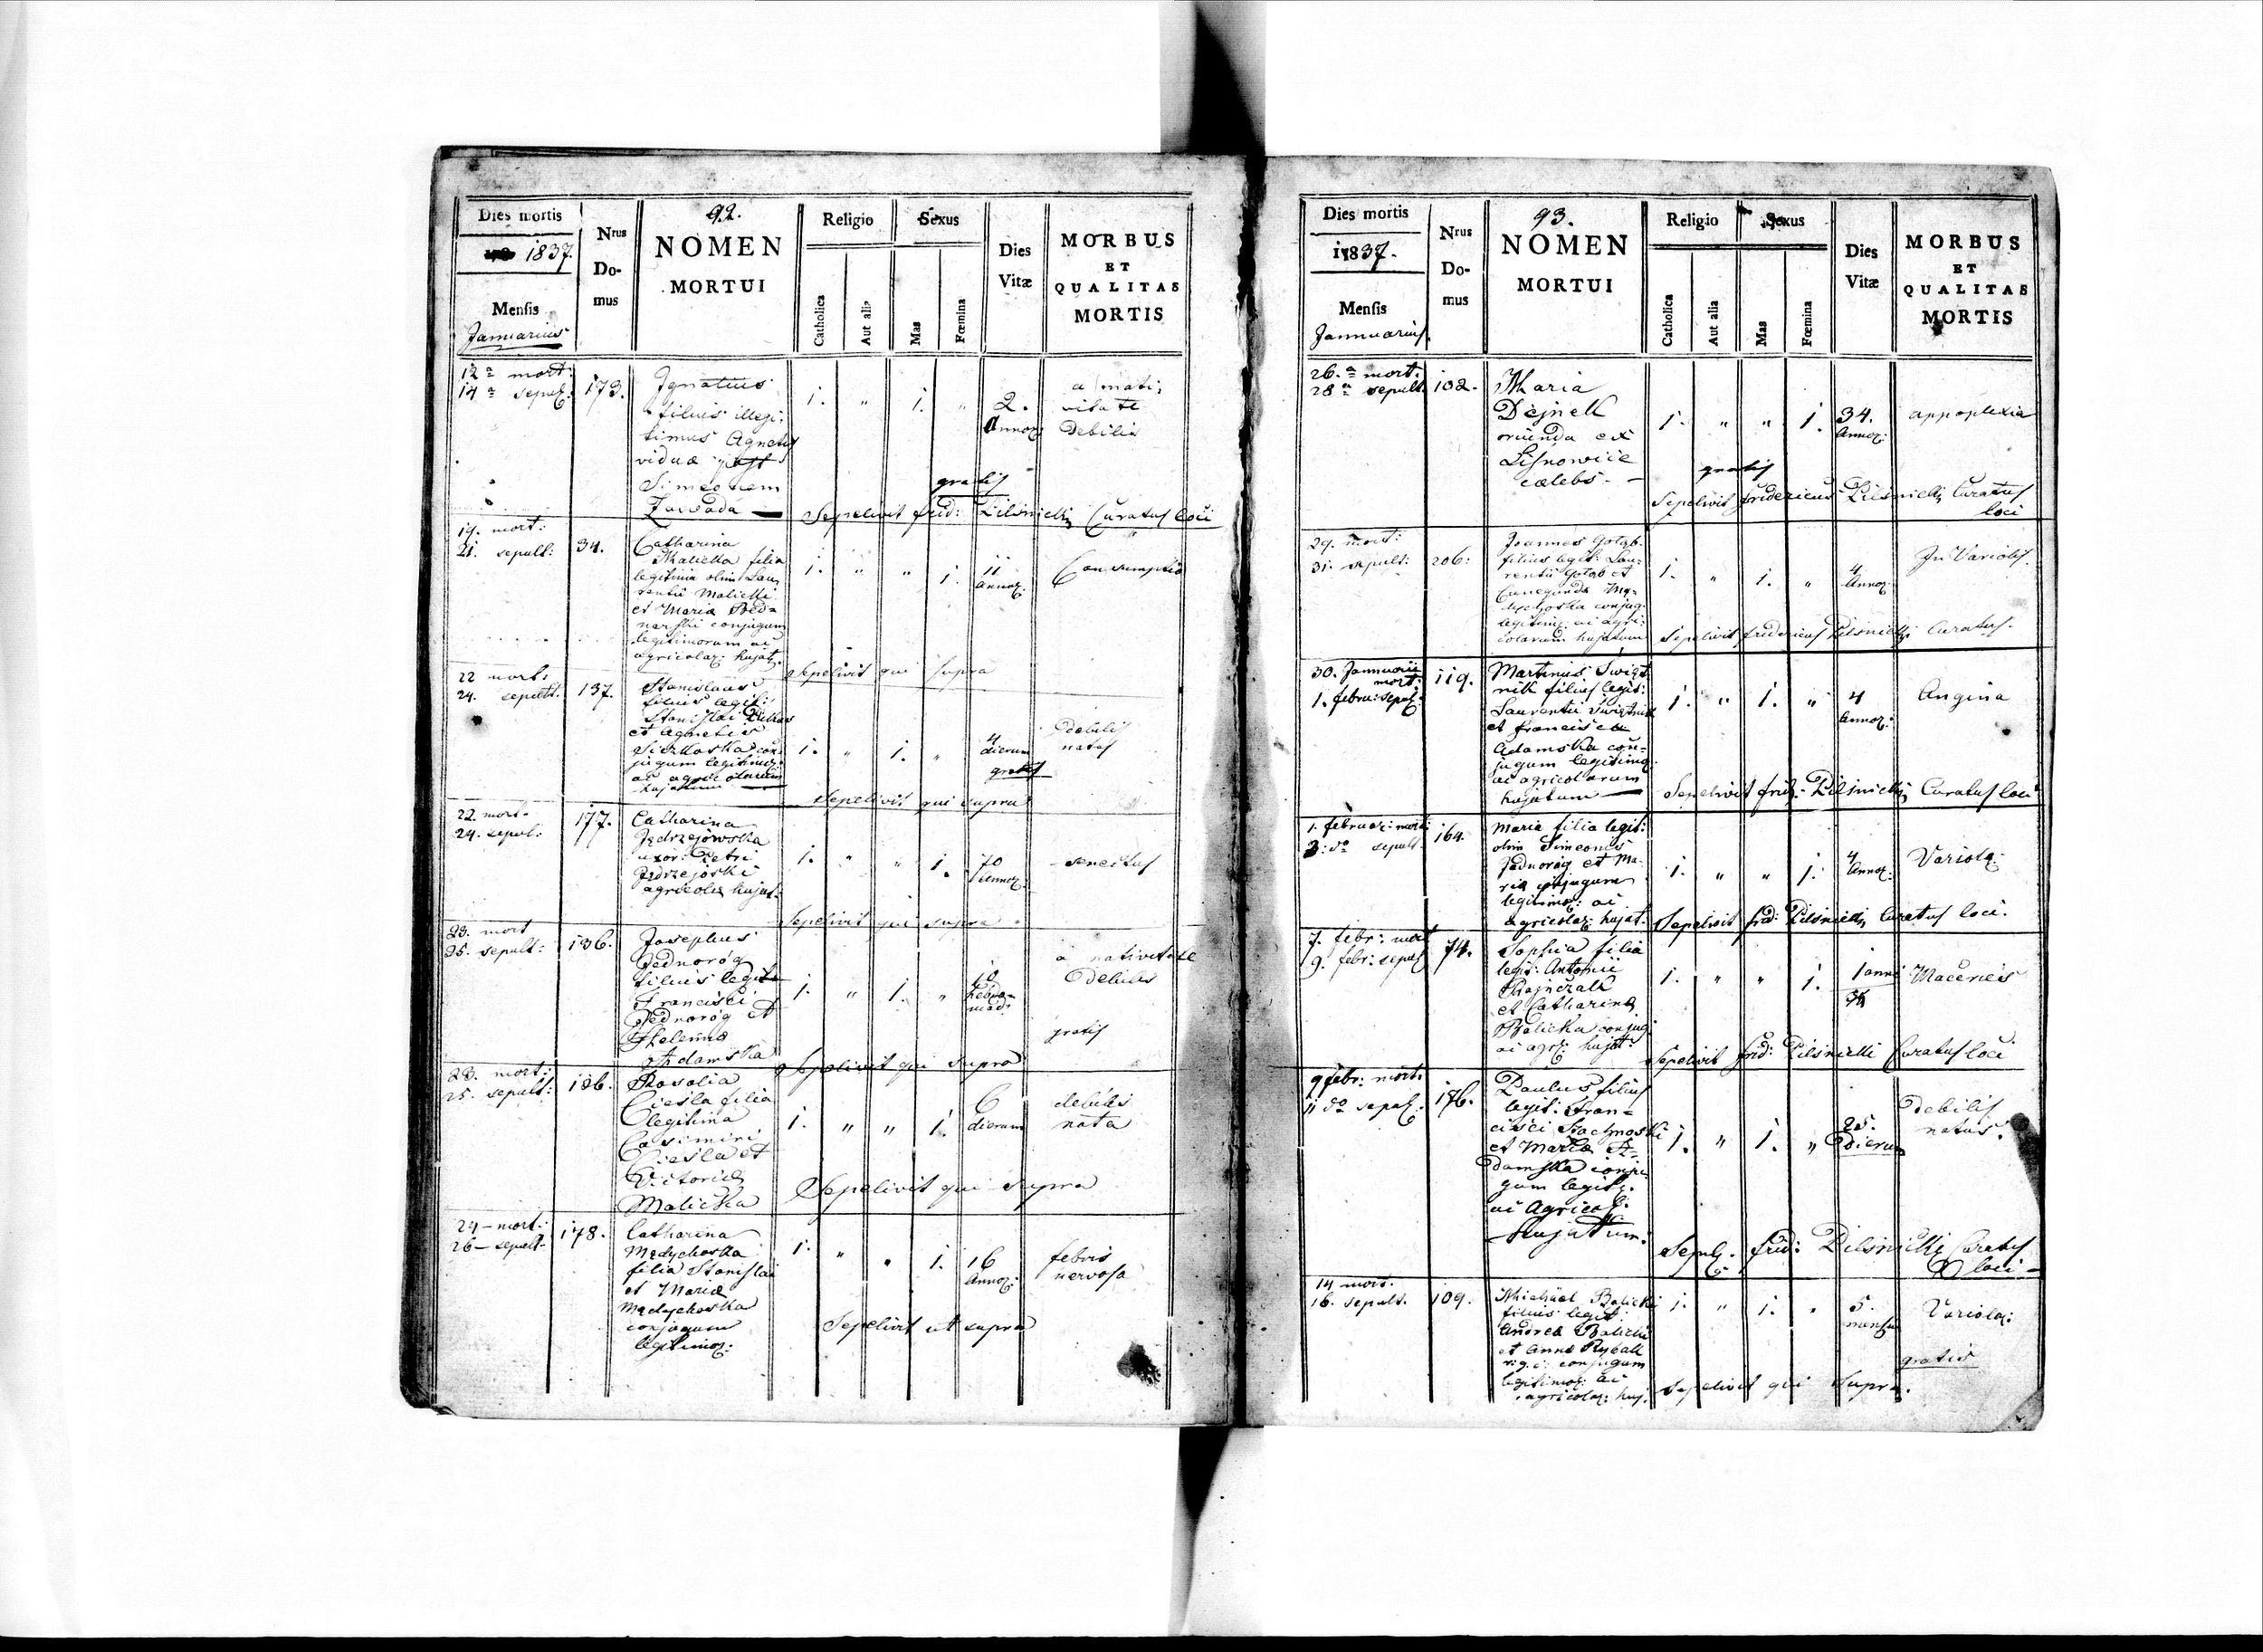 Dies mortis
1837.
Mensis
Januarius
Nrus
Do-
mus
92.
NOMEN
MORTUI
Religio
Catholica
Aut alia
Sexus
Mas
Fœmina
Dies
Vitæ
MORBUS
ET
QUALITAS
MORTIS
12a mort:
14a sepul:
173.
Ignatius
filius illegi:
timus Agnetis
viduæ post
Simeonem
Zawada
1. " 1. "
2.
Annor:
a nati:
vitate
debilis
gratis
Sepelivit frid: Pilsnicki Curatus loci
19. mort:
21. sepult:
34.
Catharina
Malicka filia
legitima olim Lau
rentii Malicki
et Maria Bed=
narski conjugum
legitimorum ac
agricolar: hujat.
1. " " 1.
11
annor:
Consumptio
Sepelivit qui supra
22 mort:
24. sepult:
137.
Stanislaus
filius legit:
Stanislai
et Agnetis
con
jugum legitimor:
ac agricolarum
hujatum
1. " 1. "
4
dierum
gratis
debilis
natus
Sepelivit qui supra
22. mort.
24. sepul:
177.
Catharina
Jędrzejowska
uxor: Petri
Jędrzejoski
agricola hujat:
1. " " 1.
70
annor:
senectus
Sepelivit qui supra
23. mort
25. sepult:
136.
Josephus
Jednoróg
filius legit:
Francisci
Jednoróg et
Helenna
Adamska
1. " 1. "
10
hebdo=
mad:
a nativitate
debilis
gratis
Sepelivit qui supra
23. mort:
25. sepult:
186.
Rosalia
Ciesla filia
legitima
Casimiri
Ciesla et
Victoria
Malicka
1. " " 1.
6
dierum
debilis
nata
Sepelivit qui supra
24 - mort:
26 - sepult:
178.
Catharina
Mędychoska
filia Stanislai
et Maria
Mędychoska
conjugum
legitimor:
1. " " 1.
16
Annor:
febris
nervosa
Sepelivit ut supra
Dies mortis
1837.
Mensis
Januarius
Nrus
Do-
mus
93.
NOMEN
MORTUI
Religio
Catholica
Aut alia
Sexus
Mas
Fœmina
Dies
Vitæ
MORBUS
ET
QUALITAS
MORTIS
26.a mort:
28a sepult.
102.
Maria
Dejnek
oriunda ex
Lisnowice
cælebs
1. " " 1.
34.
Annor:
appoplexia
gratis
Sepelivit fridericus Pilsnicki Curatus
loci
29. mort:
31. sepult:
206.
Joannes Gołąb
filius legit: Lau=
rentii Gołąb et
Cunegunda Mę=
dychoska conjug:
legitimor: ac agri:
colarum hujatum
1. " 1. "
4
Annor:
In Variolis.
Sepelivit fridericus Pilsnicki Curatus.
30. Januarii
mort:
1. febru: sepul:
119.
Martinus Świąt
nik filius legit:
Laurentii Świątnik
et francisca
Adamska con=
jugum legitimor:
ac agricolarum
hujatum
1. " 1. "
4
Annor:
Angina
Sepelivit frid: Pilsnicki Curatus loci
1. februar: mort:
3. do sepult:
164.
Maria filia legit:
olim Simeonis
Jednoróg et Ma=
ria conjugum
legitimor: ac
agricolar: hujat:
1. " " 1.
4
Annor:
Variola:
Sepelivit frid: Pilsnicki Curatus loci.
7. febr: mort
9. febr: sepul
74.
Sophia filia
legit: Antonii
et Catharina
Balicka conjug
ac agr: hujat:
1. " " 1.
1 anni
Macenes
Sepelivit frid: Pilsnicki Curatus loci
9 febr: mort:
11 do sepul:
176.
Paulus filius
legit: Fran=
cisci Stachnoski
et Maria A=
damska conju
gum legitr:
ac Agricol:
hujatum.
1. " 1. "
25.
Dierum
Debilis
natus.
Sepul: frid: Pilsnicki Curatus
loci
14 mort.
16. sepult.
109.
Michael Balicki
filius legit:
Andrea Balicki
et Anna Rybak
conjugum
legitimor: ac
agricolar: huj.
1. " 1. "
5.
mensium
Variola:
gratis
Sepelivit qui supra.